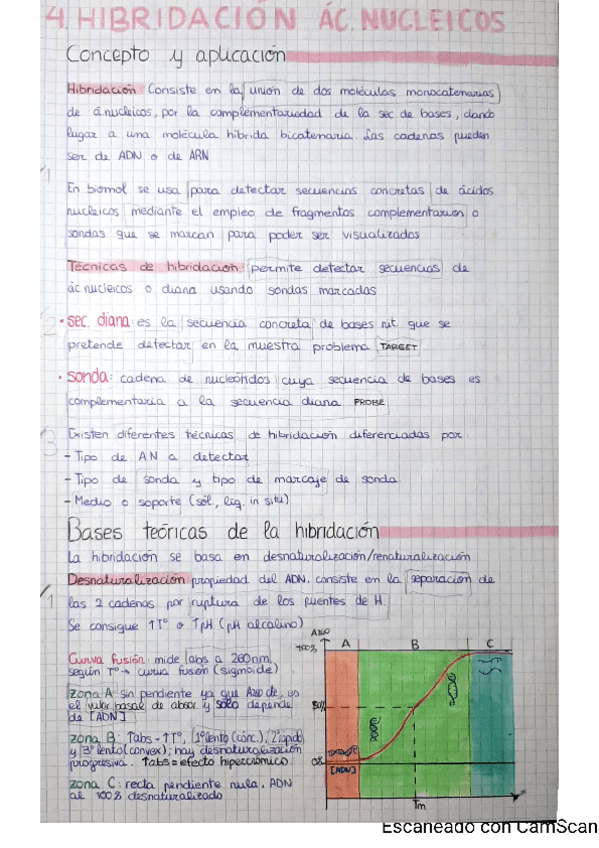 4. HIBRIDACIÓN ÁC. NUCLEICOS
Concepto y aplicación
Hibridación Consiste en la unión de dos moléculas monocatenarias
de á.nucleicos, por la complementariedad de la sec de bases, dando
lugar a una molécula híbrida bicatenaria. Las cadenas pueden
ser de ADN o de ARN
1
En biomol se usa para detectar secuencias concretas de ácidos
nucleicos mediante el empleo de fragmentos complementarios o
sondas que se marcan para poder ser visualizados
Técnicas de hibridación: permite detectar secuencias de
ác nucleicos o diana usando sondas marcadas
2
• sec. diana: es la secuencia concreta de bases nit. que se
pretende detectar en la muestra problema TARGET
• sonda: cadena de nucleótidos cuya secuencia de bases es
complementaria a la secuencia diana PROBE
3
Existen diferentes técnicas de hibridación diferenciadas por:
- Tipo de AN a detectar
- Tipo de sonda y tipo de marcaje de sonda
- Medio o soporte (sól, líq, in situ)
Bases teóricas de la hibridación
La hibridación se basa en desnaturalización/renaturalización
Desnaturalización: propiedad del ADN, consiste en la separación de
1
las 2 cadenas por ruptura de los puentes de H.
Se consigue ↑Tº o ↑pH (pH alcalino)
Curva fusión: mide abs a 260nm
según Tº → curva fusión (sigmoide)
zona A: sin pendiente ya que A260 de, es
el valor basal de absor. y sólo depende
de [ADN]
zona B: ↑abs - ↑Tº, 1º lento (cónc.), 2º rápido
y 3º lento (convex); hay desnaturalización
progresiva. ↑abs = efecto hipercrómico.
zona C: recta pendiente nula. ADN
al 100% desnaturalizado
A260
100%
A
B
C
50%
0%
[ADN]
Tm
Escaneado con CamScan